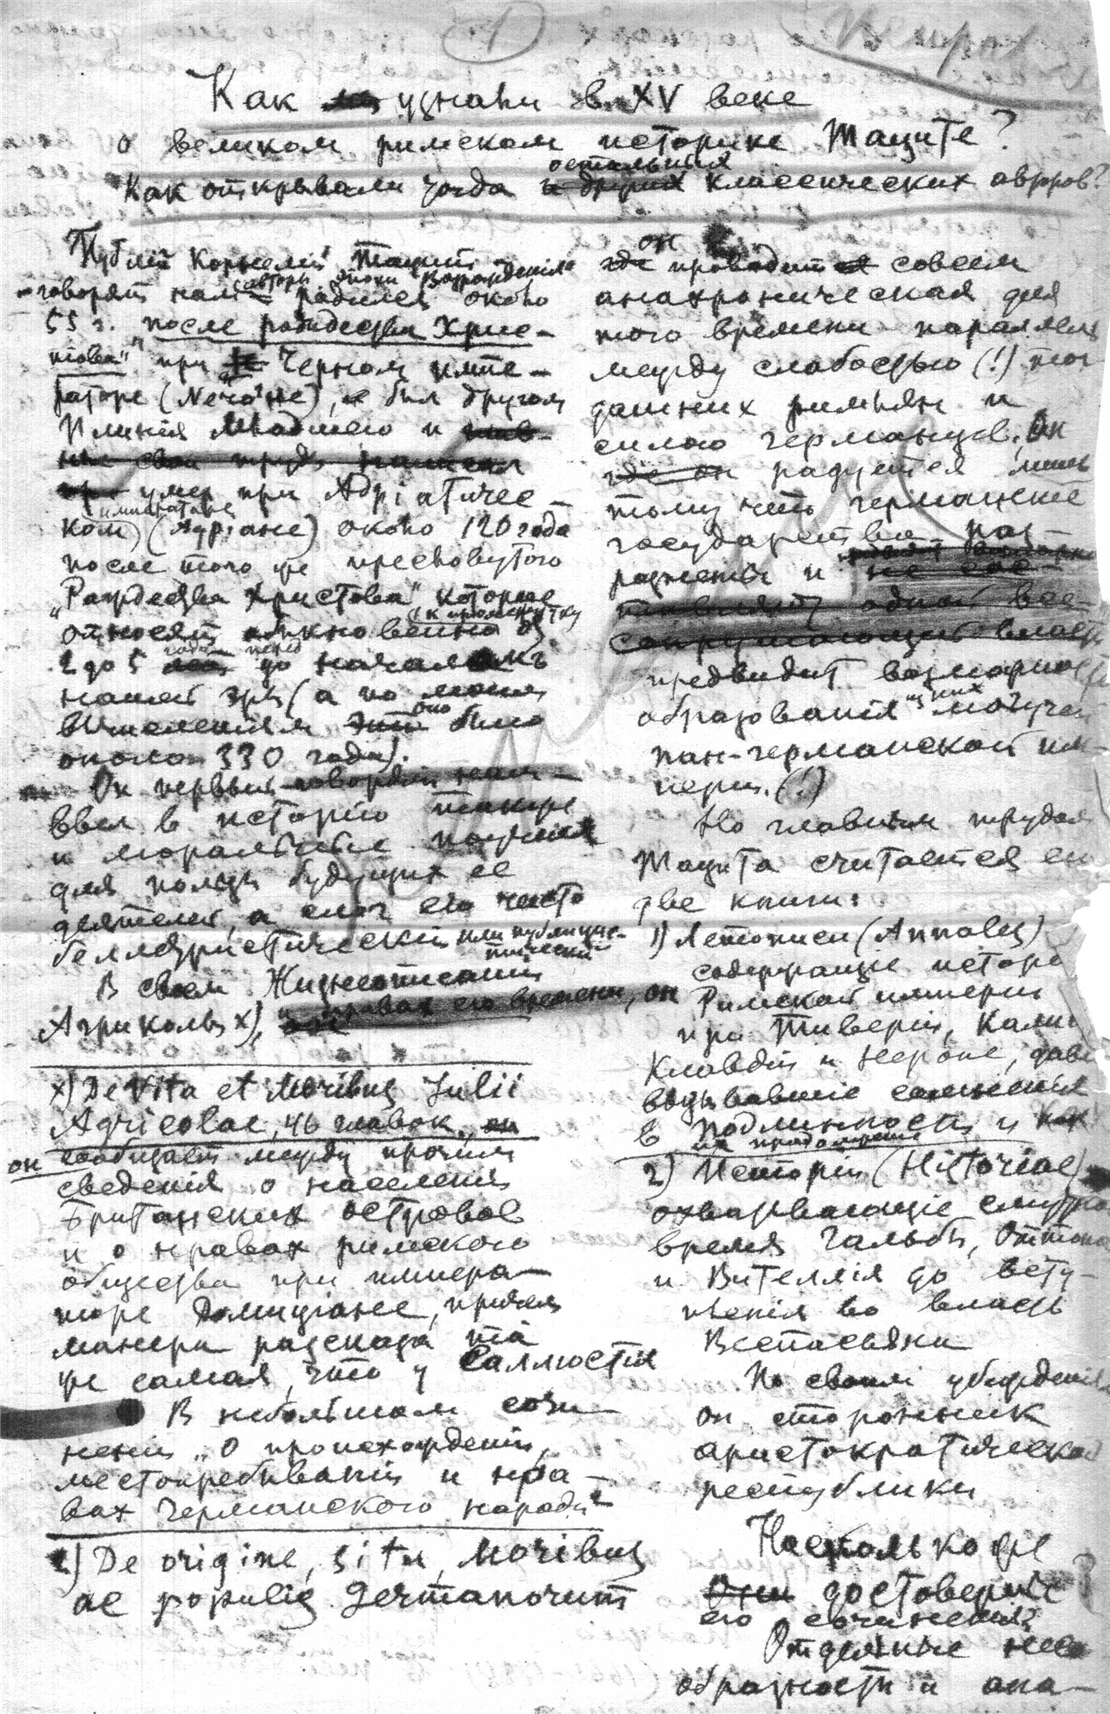 Как узнали в XV веке
о великом римском историке Таците?
Как открывали тогда остальных классических авторов?
Публий Корнелий Тацит
говорят нам авторы эпохи "Возрождения"
родился около
55 г. после рождества Хрис-
това" при Черном импе-
раторе (Nero'не), был другом
Плиния Младшего и
умер при Адріатичес-
ком императоре (Адріане) около 120 года
после того же пресловутого
"Рождества Христова" которые
относят обыкновенно к промежутку
2 до 5 года перед началом
нашей эры (а по моим
вычисленіям оно было
около 330 года).
Он первый
ввел в исторію также
и моральные поученія
для пользы будущих ее
деятелей, а слог его чисто
беллетристическій или публицис-
тический
В своем Жизнеописаніи
Агриколы x),
x) De Vita et Moribus Julii
Agricolae, 46 главок.
он сообщает между прочим
сведения о населеніи
Британских островов
и о нравах римского
общества при импера-
торе Домиціане, причем
манера разсказа та
же самая, что у Саллюстія
В небольшом сочи-
неніи "О происхожденіи,
местопребываніи и нра-
вах Германского народа"
2) De origine, situ, Moribus
ac populis Germanorum
он проводит совсем
анахроническая для
того времени параллель
между слабостью (!) тог
дашних римлян и
силою германцев. Он
радуется лишь
тому что германскіе
государства
и
предвидит возможность
образованія из них могучей
пан-германской им-
перии. (!)
Но главным трудом
Тацита считается его
две книги:
1) Летописи (Annales)
содержащіе истор
Римской имперіи
при Тиверіи, Кали
Клавдіи и Нероне, даве
вызывавшіе сомненія
в подлинности
2) Исторіи (Historiae)
охватывающіе смутное
время Гальбы, Оттона
и Вителлія до всту-
пленія во власть
Веспасьяна
По своим убежденіям
он сторонник
аристократической
республики
Насколько же
достоверны
его сочинения?
Отдельные несо
образности и ана-